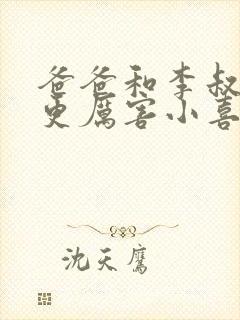 爸爸和李叔
更厉害小喜
沈天鹰